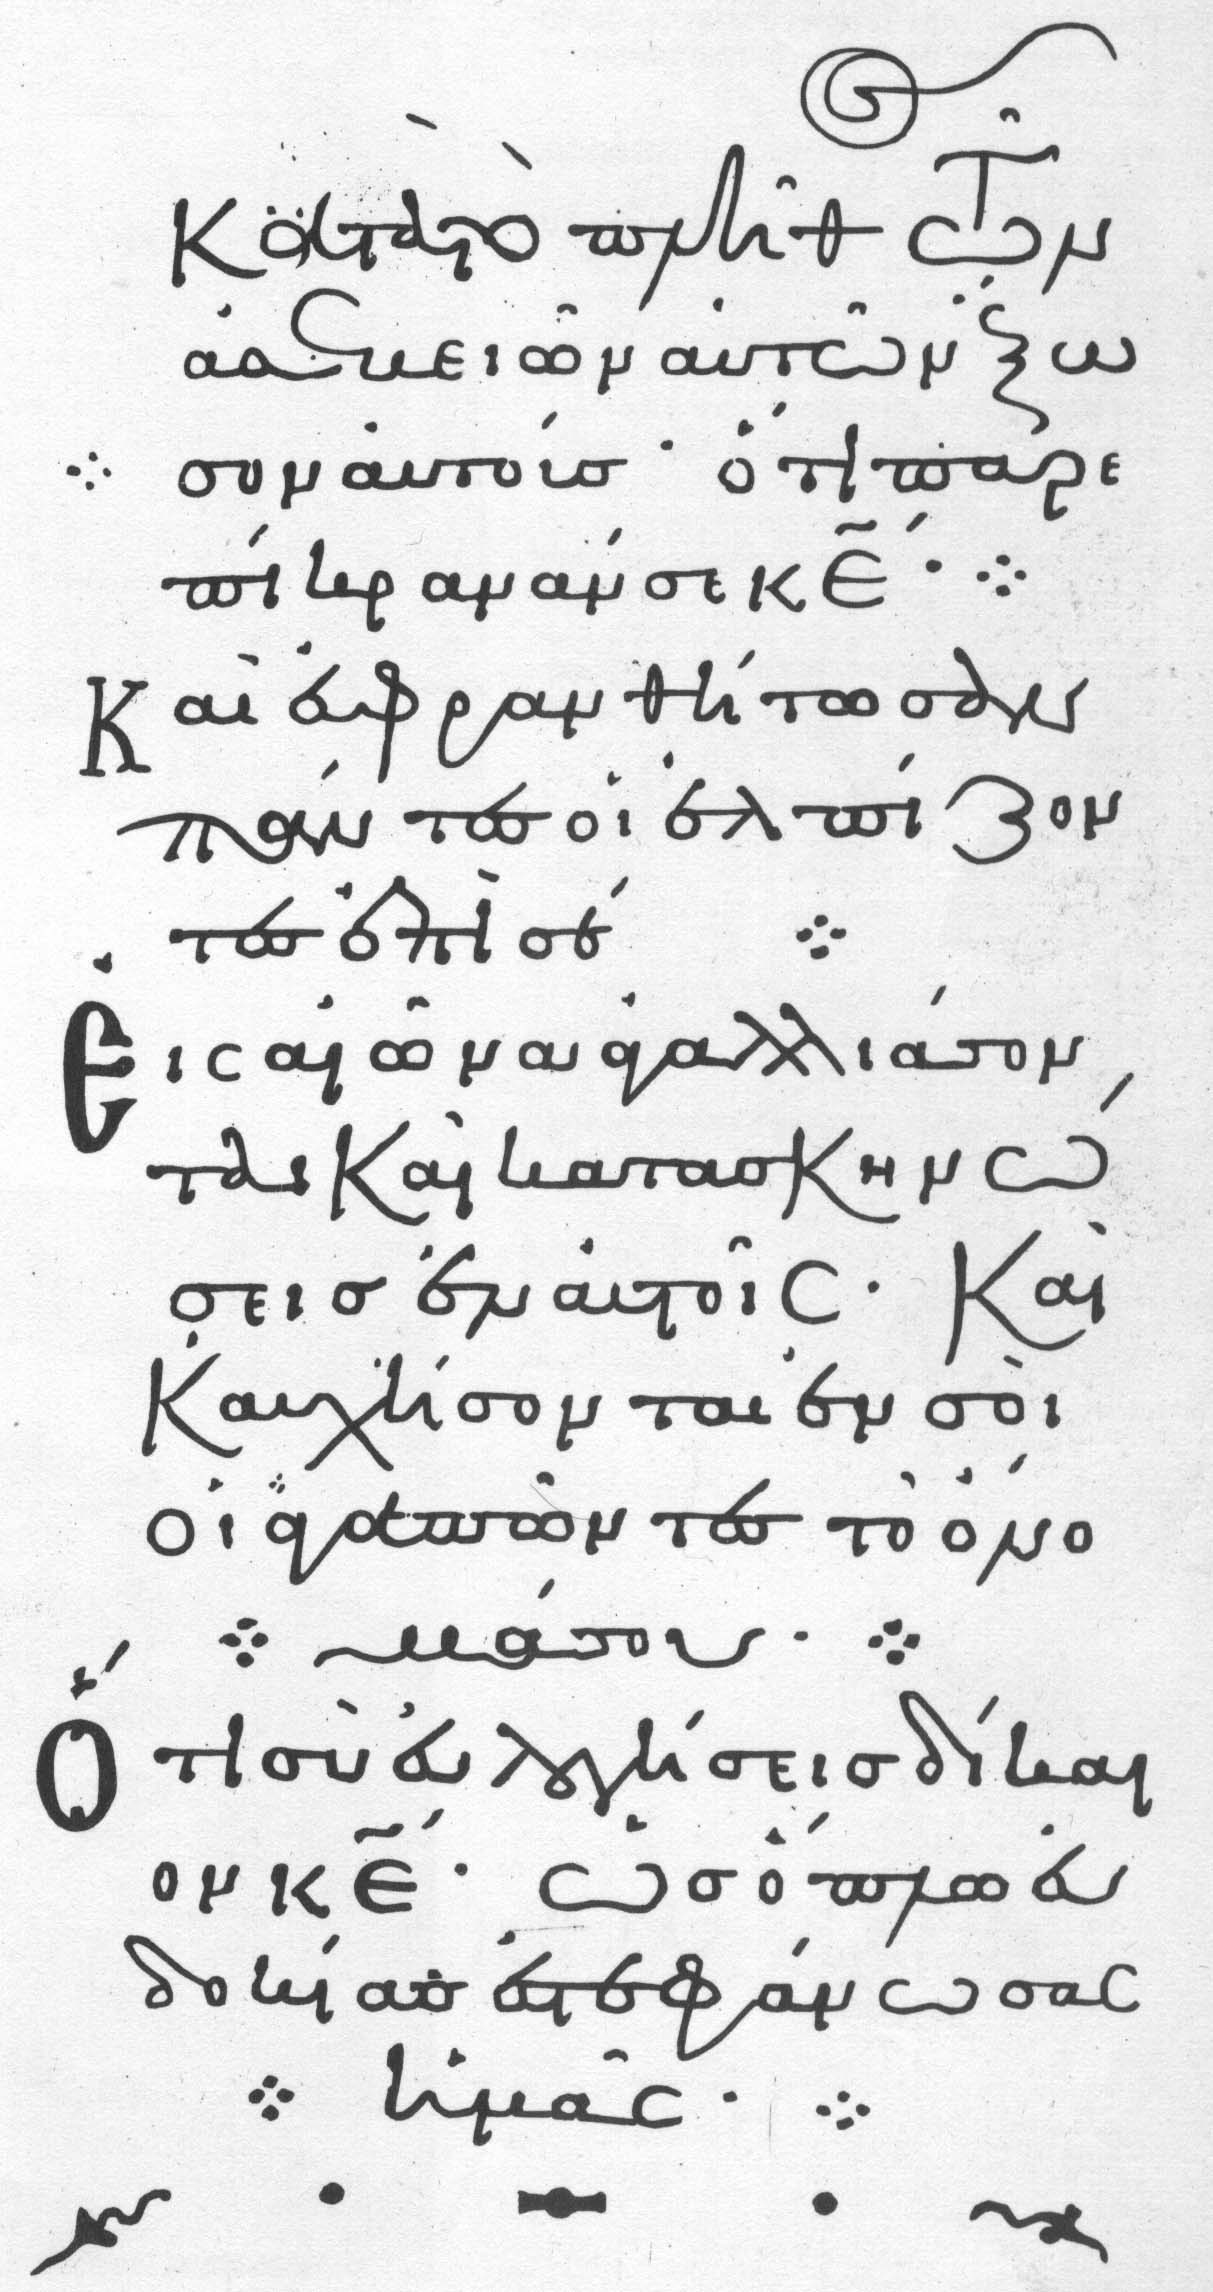 Κατὰ τὸ πλῆθος τῶν
ἀσεβειῶν αὐτῶν ἔξω
σον αὐτούς· ὅτι παρε
πίκρανάν σε κ̅ε̅·
Καὶ εὐφρανθήτωσαν
πάντες οἱ ἐλπίζον
τες ἐπὶ σέ
Εἰς αἰῶνα ἀγαλλιάσον
ται καὶ κατασκηνώ
σεις ἐν αὐτοῖς· Καὶ
καυχήσονται ἐν σοὶ
οἱ ἀγαπῶντες τὸ ὄνο
μά σου·
Ὅτι σὺ εὐλογήσεις δίκαι
ον κ̅ε̅· ὡς ὅπλω εὐ
δοκίας ἐστεφάνωσας
ἡμᾶς·